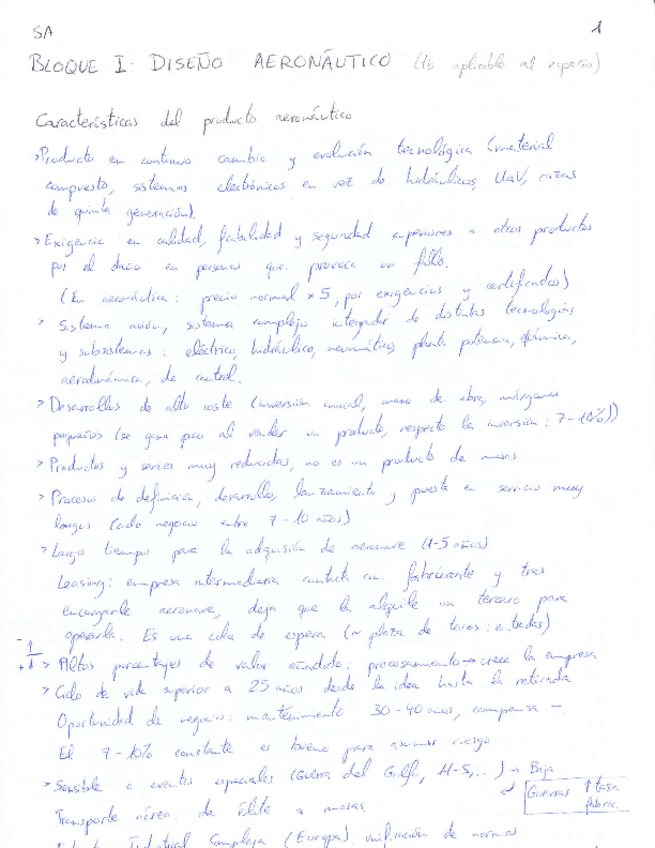 SA
1
BLOQUE I: DISEÑO AERONÁUTICO (tb aplicable al espacio)
Características del producto aeronáutico
>Producto en continuo cambio y evolución tecnológica (material
compuesto, sistemas electrónicos en vez de hidráulicos, UaV, cazas
de quinta generación).
>Exigencia en calidad, fiabilidad y seguridad superiores a otros productos
por el daño en personas que provoca un fallo.
(En aeronáutica: precio normal x5, por exigencias y certificados)
> Sistema avión, sistema complejo integrador de distintas tecnologías
y subsistemas: eléctrico, hidráulico, neumático, planta potencia, química,
aerodinámica, de control.
> Desarrollos de alto coste (inversión inicial, mano de obra, márgenes
pequeños (se gana poco al vender un producto, respecto la inversión: 7-10%))
> Productos y series muy reducidas, no es un producto de masas
> Procesos de definición, desarrollo, lanzamiento y puesta en servicio muy
largos (ciclo negocio entre 7-10 años)
> Largo tiempo para la adquisión de aeronave (1-5 años)
Leasing: empresa intermediaria contacta con fabricante y tras
encargarle aeronave, deja que la alquile un tercero para
operarla. Es una cola de espera (~ plaza de toros: entradas)
- ↑
+ ↓ > Altos porcentajes de valor añadido: procesamiento → crece la empresa
> Ciclo de vida superior a 25 años desde la idea hasta la retirada
Oportunidad de negocio: mantenimiento 30-40 años, compensa -
El 7-10% constante es bueno para asumir riesgo
> Sensible a eventos especiales (Guerra del Golfo, 11-S,...) → Baja
Guerras ↑ tasa
fabric.
Transporte aéreo de élite a masas
Industrial Compleja (Europa) unificación de normas